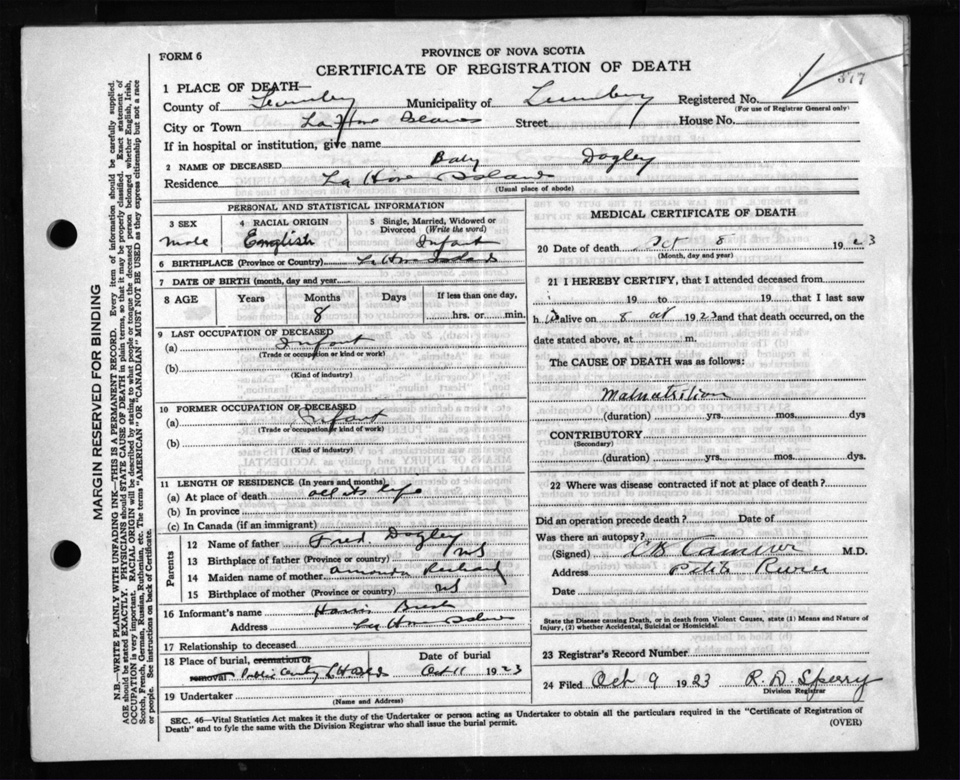 FORM 6
PROVINCE OF NOVA SCOTIA
CERTIFICATE OF REGISTRATION OF DEATH
377
1 PLACE OF DEATH—
County of Lunenburg Municipality of Lunenburg Registered No.
(For use of Registrar General only)
City or Town La Have Street House No.
If in hospital or institution, give name
2 NAME OF DECEASED Baby Dogley
Residence La Have Island
(Usual place of abode)
PERSONAL AND STATISTICAL INFORMATION
3 SEX 4 RACIAL ORIGIN 5 Single, Married, Widowed or Divorced (Write the word)
male English Infant
6 BIRTHPLACE (Province or Country) La Have Island
7 DATE OF BIRTH (month, day and year)
8 AGE Years Months Days If less than one day,
8 hrs. or min.
9 LAST OCCUPATION OF DECEASED
(a) Infant
(Trade or occupation or kind or work)
(b)
(Kind of industry)
10 FORMER OCCUPATION OF DECEASED
(a) Infant
(Trade or occupation or kind of work)
(b)
(Kind of industry)
11 LENGTH OF RESIDENCE (In years and months)
(a) At place of death all its life
(b) In province
(c) In Canada (if an immigrant)
Parents
12 Name of father Fred. Dogley
13 Birthplace of father (Province or country) NS
14 Maiden name of mother Amanda
15 Birthplace of mother (Province or country) NS
16 Informant's name Harris
Address La Have Islands
17 Relationship to deceased
18 Place of burial, cremation or removal Date of burial
Public Oct 11 1923
19 Undertaker
(Name and Address)
MEDICAL CERTIFICATE OF DEATH
20 Date of death Oct 8 1923
(Month, day and year)
21 I HEREBY CERTIFY, that I attended deceased from
19 to 19 that I last saw
h alive on 8 oct 1923 and that death occurred, on the
date stated above, at m.
The CAUSE OF DEATH was as follows:
Malnutrition
(duration) yrs. mos. dys
CONTRIBUTORY
(Secondary)
(duration) yrs. mos. dys.
22 Where was disease contracted if not at place of death?
Did an operation precede death? Date of
Was there an autopsy?
(Signed) Cameron M.D.
Address Petite Riviere
Date
State the Disease causing Death, or in death from Violent Causes, state (1) Means and Nature of Injury, (2) whether Accidental, Suicidal or Homicidal.
23 Registrar's Record Number
24 Filed Oct 9 1923 R. D. Sperry
Division Registrar
SEC. 46—Vital Statistics Act makes it the duty of the Undertaker or person acting as Undertaker to obtain all the particulars required in the "Certificate of Registration of
Death" and to fyle the same with the Division Registrar who shall issue the burial permit. (OVER)
MARGIN RESERVED FOR BINDING
N.B.—WRITE PLAINLY WITH UNFADING INK—THIS IS A PERMANENT RECORD. Every item of information should be carefully supplied.
AGE should be stated EXACTLY. PHYSICIANS should STATE CAUSE OF DEATH in plain terms, so that it may be properly classified. Exact statement of
OCCUPATION is very important. RACIAL ORIGIN will be described by stating to what people or tongue the deceased person belonged, whether English, Irish,
Scotch, French, German, Russian, Ruthenian, etc. The terms "AMERICAN" OR "CANADIAN" MUST NOT BE USED as they express citizenship but not a race
or people. See instructions on back of Certificate.